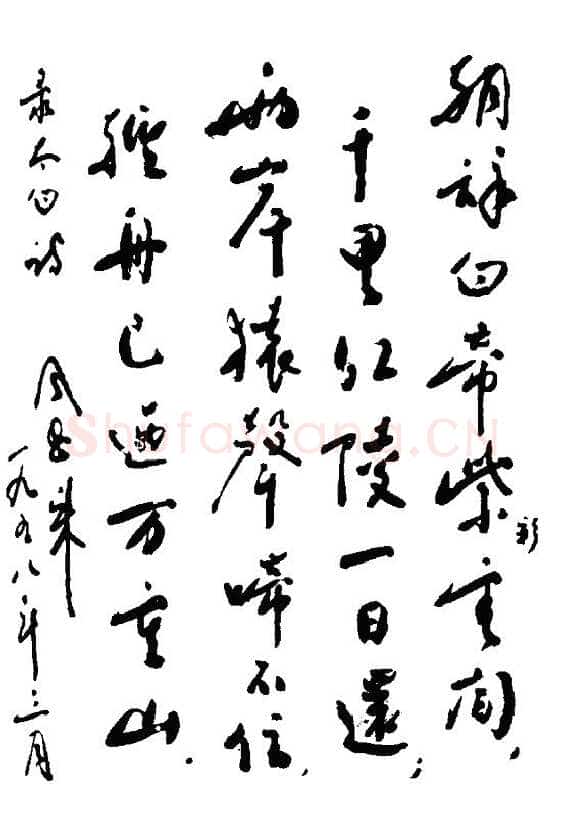 朝辞白帝紫雲间,
彩
千里江陵一日還;
兩岸猿聲啼不住,
轻舟已過万重山.
录太白诗
周恩来
一九五八年三月
Shufawang.CN